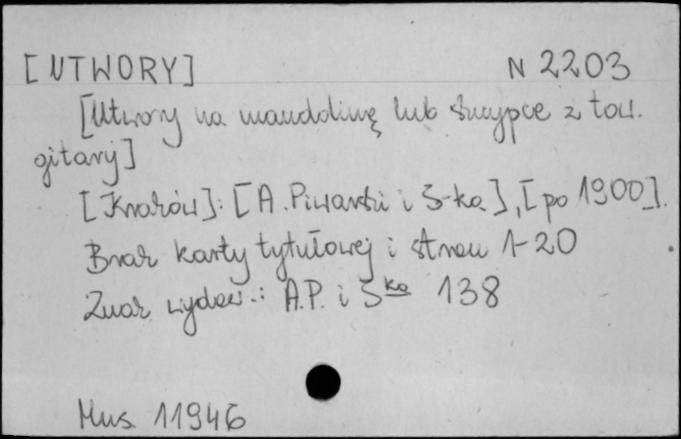 [UTWORY] N 2203
[Utwory na mandolinę lub skrzypce z tow.
gitary]
[Kraków]: [A. Piwarski i S-ka], [po 1900].
Brak karty tytułowej i stron 1-20
Znak wydaw.: A.P. i Ska 138
Mus. 11946